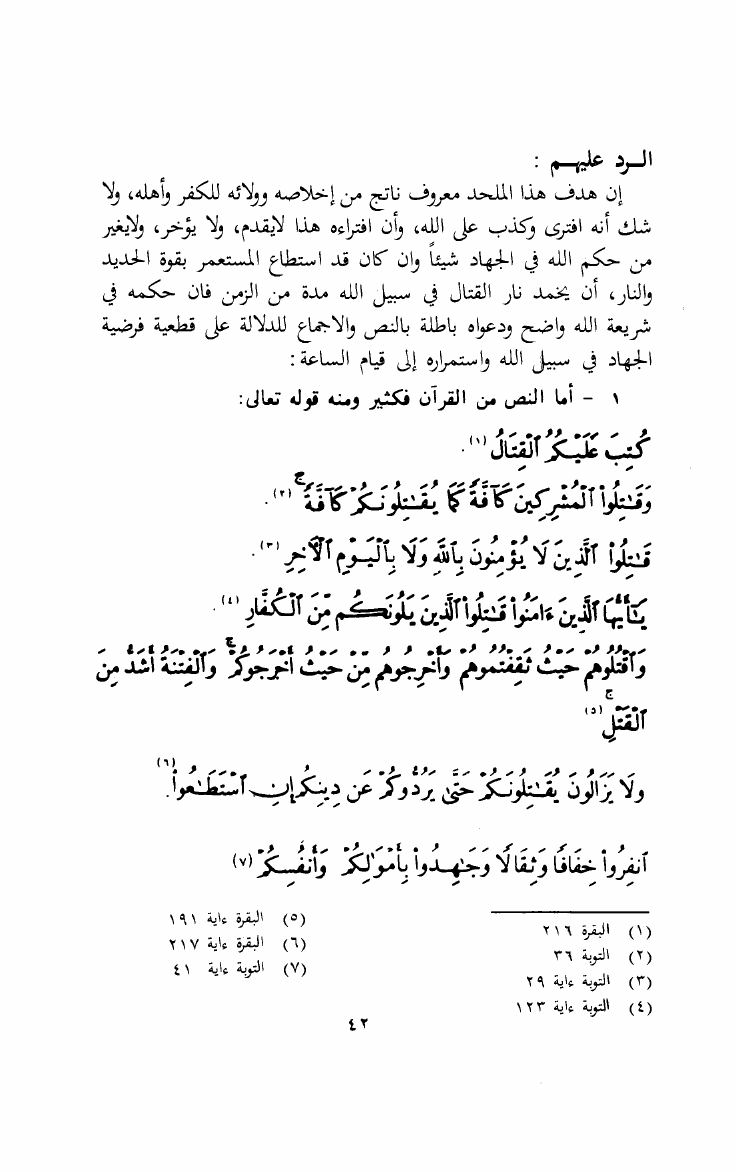 الرد عليهم :
إن هدف هذا الملحد معروف ناتج من إخلاصه وولائه للكفر وأهله، ولا
شك أنه افترى وكذب على الله، وأن افتراءه هذا لايقدم، ولا يؤخر، ولايغير
من حكم الله في الجهاد شيئاً وان كان قد استطاع المستعمر بقوة الحديد
والنار، أن يخمد نار القتال في سبيل الله مدة من الزمن فان حكمه في
شريعة الله واضح ودعواه باطلة بالنص والاجماع للدلالة على قطعية فرضية
الجهاد في سبيل الله واستمراره إلى قيام الساعة :
١ - أما النص من القرآن فكثير ومنه قوله تعالى:
كُتِبَ عَلَيْكُمُ ٱلْقِتَالُ (١).
وَقَـٰتِلُوا۟ ٱلْمُشْرِكِينَ كَآفَّةً كَمَا يُقَـٰتِلُونَكُمْ كَآفَّةً ۚ (٢).
قَـٰتِلُوا۟ ٱلَّذِينَ لَا يُؤْمِنُونَ بِٱللَّهِ وَلَا بِٱلْيَوْمِ ٱلْـَٔاخِرِ (٣).
يَـٰٓأَيُّهَا ٱلَّذِينَ ءَامَنُوا۟ قَـٰتِلُوا۟ ٱلَّذِينَ يَلُونَكُم مِّنَ ٱلْكُفَّارِ (٤).
وَٱقْتُلُوهُمْ حَيْثُ ثَقِفْتُمُوهُمْ وَأَخْرِجُوهُم مِّنْ حَيْثُ أَخْرَجُوكُمْ ۚ وَٱلْفِتْنَةُ أَشَدُّ مِنَ
ٱلْقَتْلِ ۚ (٥)
وَلَا يَزَالُونَ يُقَـٰتِلُونَكُمْ حَتَّىٰ يَرُدُّوكُمْ عَن دِينِكُمْ إِنِ ٱسْتَطَـٰعُوا۟ (٦).
ٱنفِرُوا۟ خِفَافًا وَثِقَالًا وَجَـٰهِدُوا۟ بِأَمْوَٰلِكُمْ وَأَنفُسِكُمْ (٧)
(١) البقرة ٢١٦
(٢) التوبة ٣٦
(٣) التوبة ءاية ٢٩
(٤) التوبة ءاية ١٢٣
(٥) البقرة ءاية ١٩١
(٦) البقرة ءاية ٢١٧
(٧) التوبة ءاية ٤١
٤٢